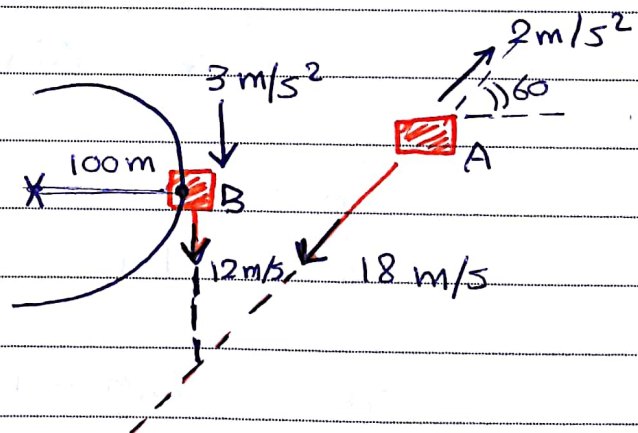 2m/s²
3 m/s²
60
A
100m
B
12m/s
18 m/s